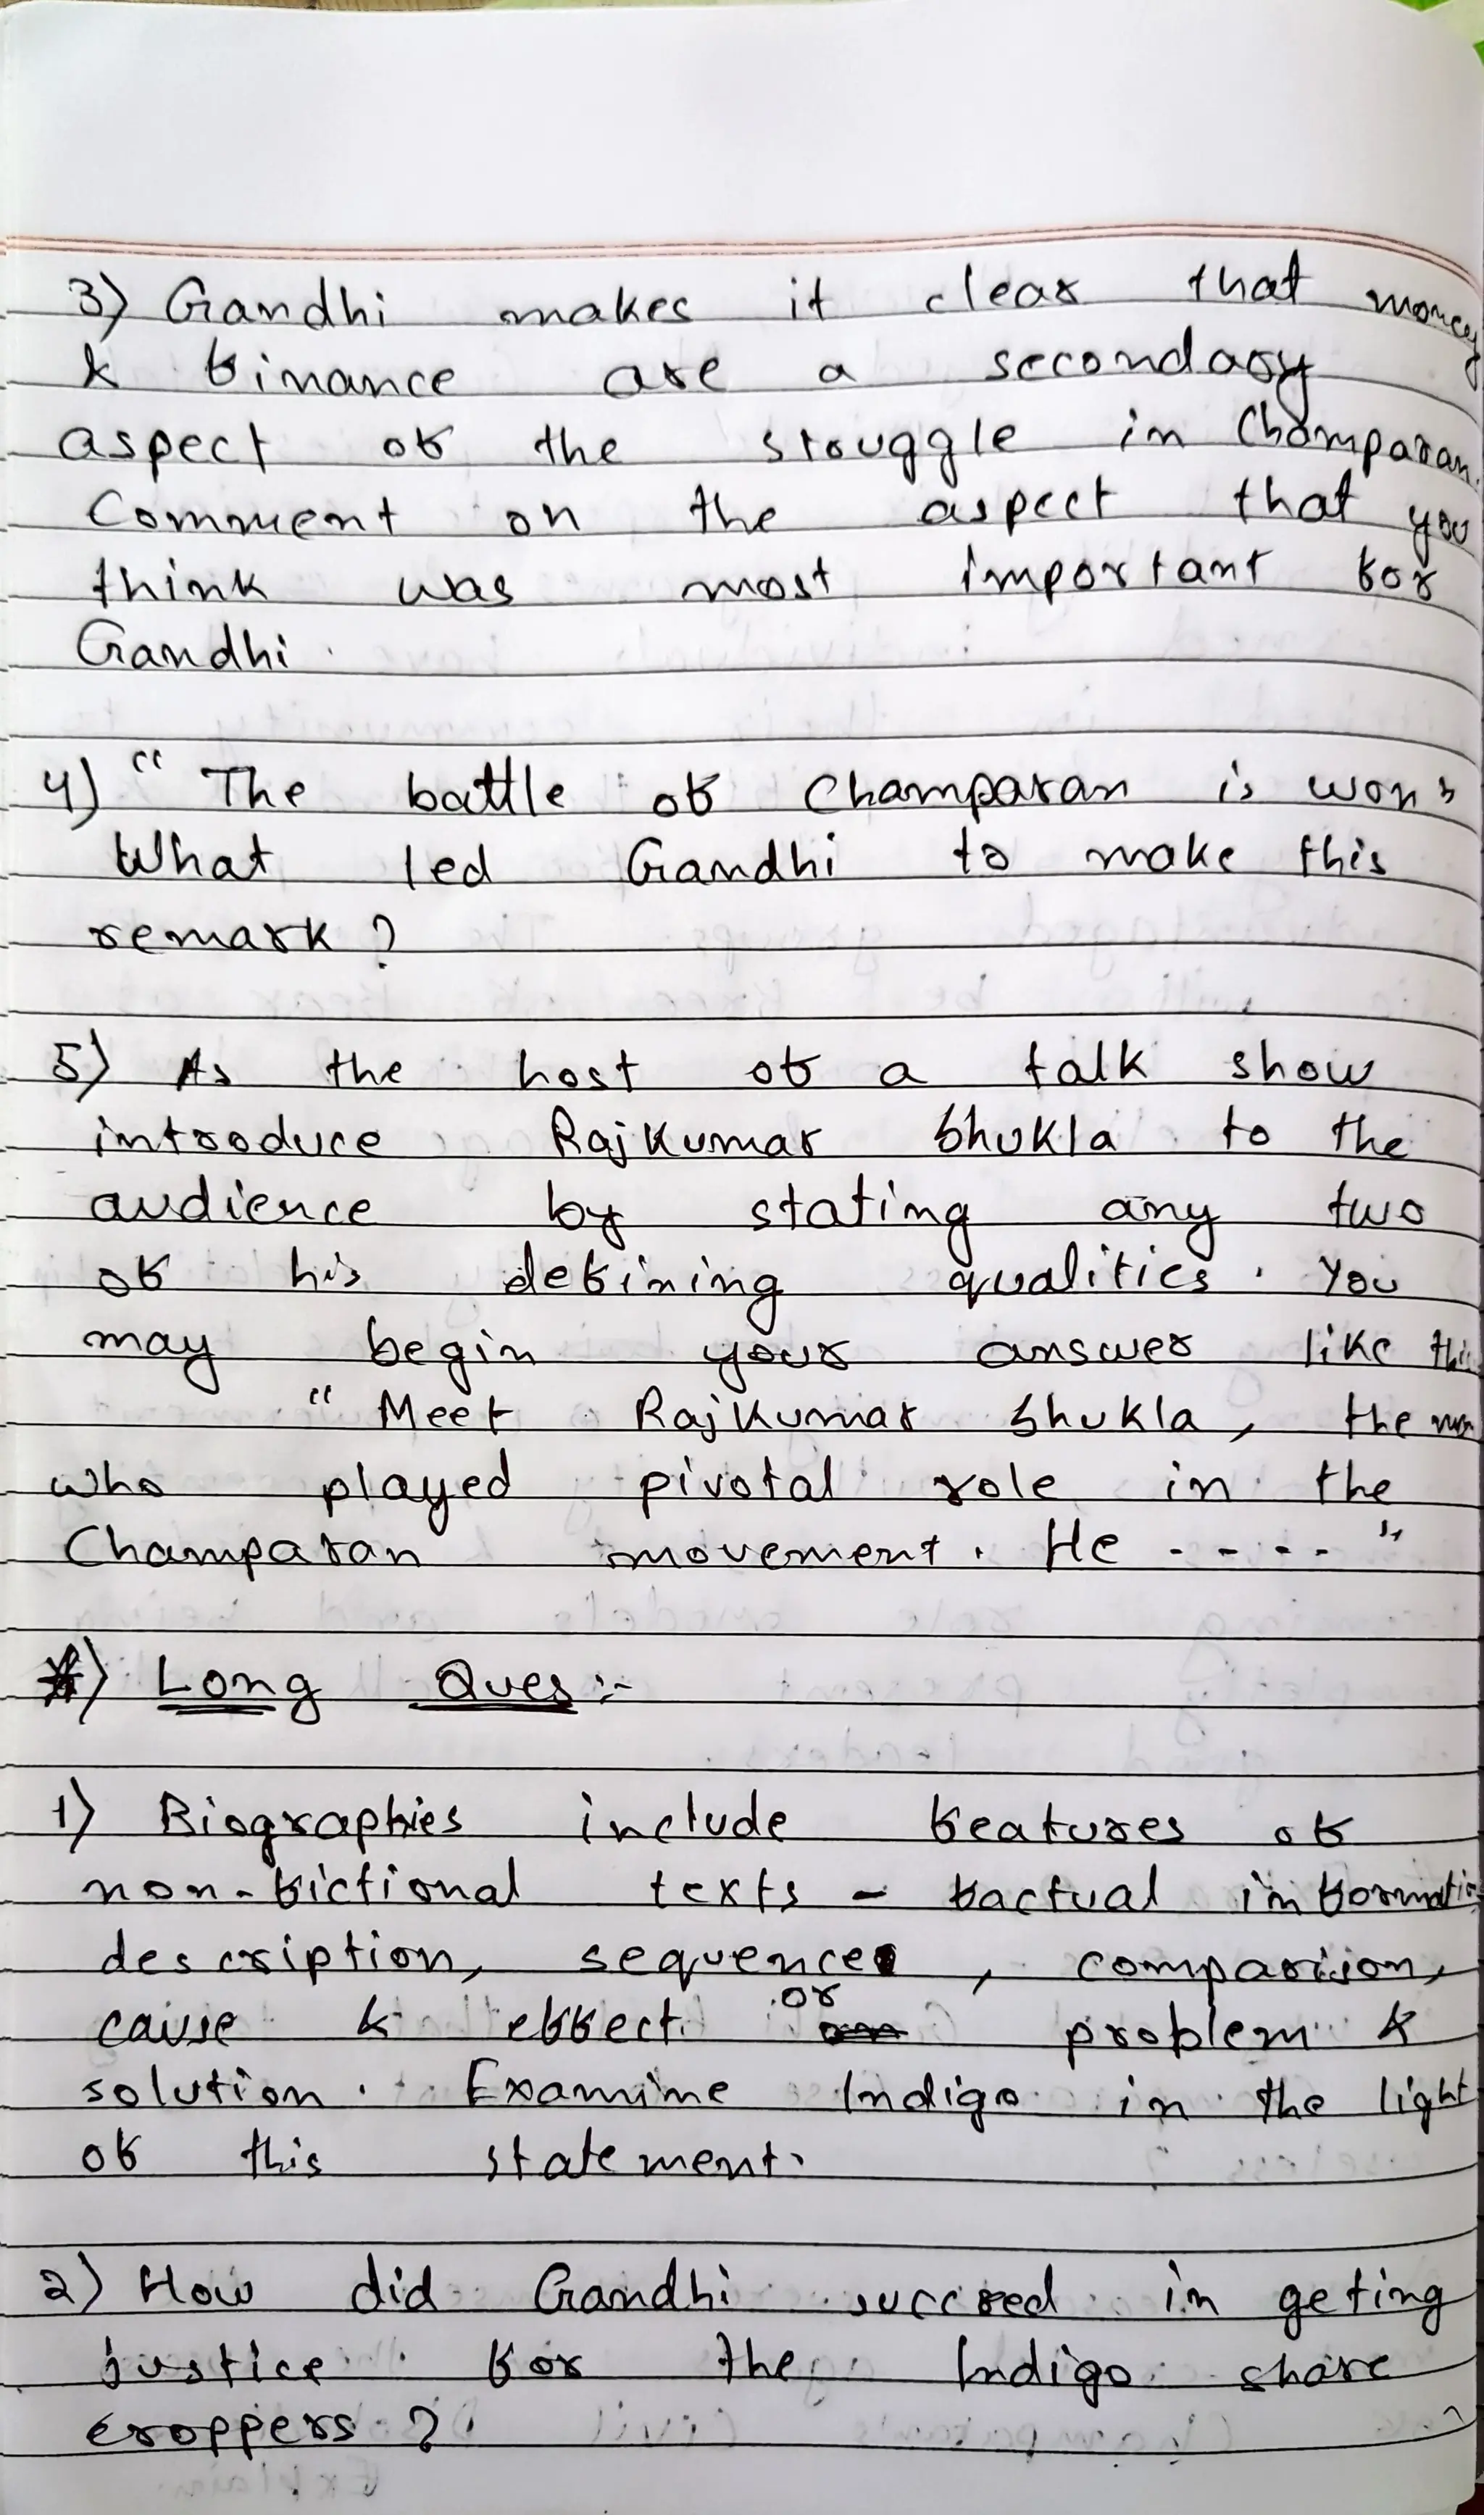 3) Gandhi makes it clear that money
& finance are a secondary
aspect of the struggle in Champaran.
Comment on the aspect that you
think was most important for
Gandhi.
4) "The battle of Champaran is won"
What led Gandhi to make this
remark?
5) As the host of a talk show
introduce Rajkumar Shukla to the
audience by stating any two
of his defining qualities. You
may begin your answer like this
"Meet Rajkumar Shukla, the man
who played pivotal role in the
Champaran movement. He ....."
*) Long Ques:-
1) Biographies include features of
non-fictional texts - factual information
description, sequence, comparision,
cause & effect or problem &
solution. Examine Indigo in the light
of this statement.
2) How did Gandhi succeed in geting
justice for the Indigo share
croppers?